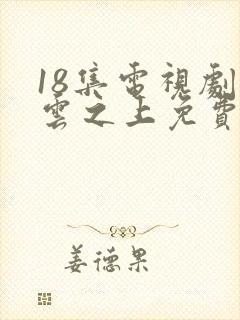 18集電視劇
雲之上免費
姜德果